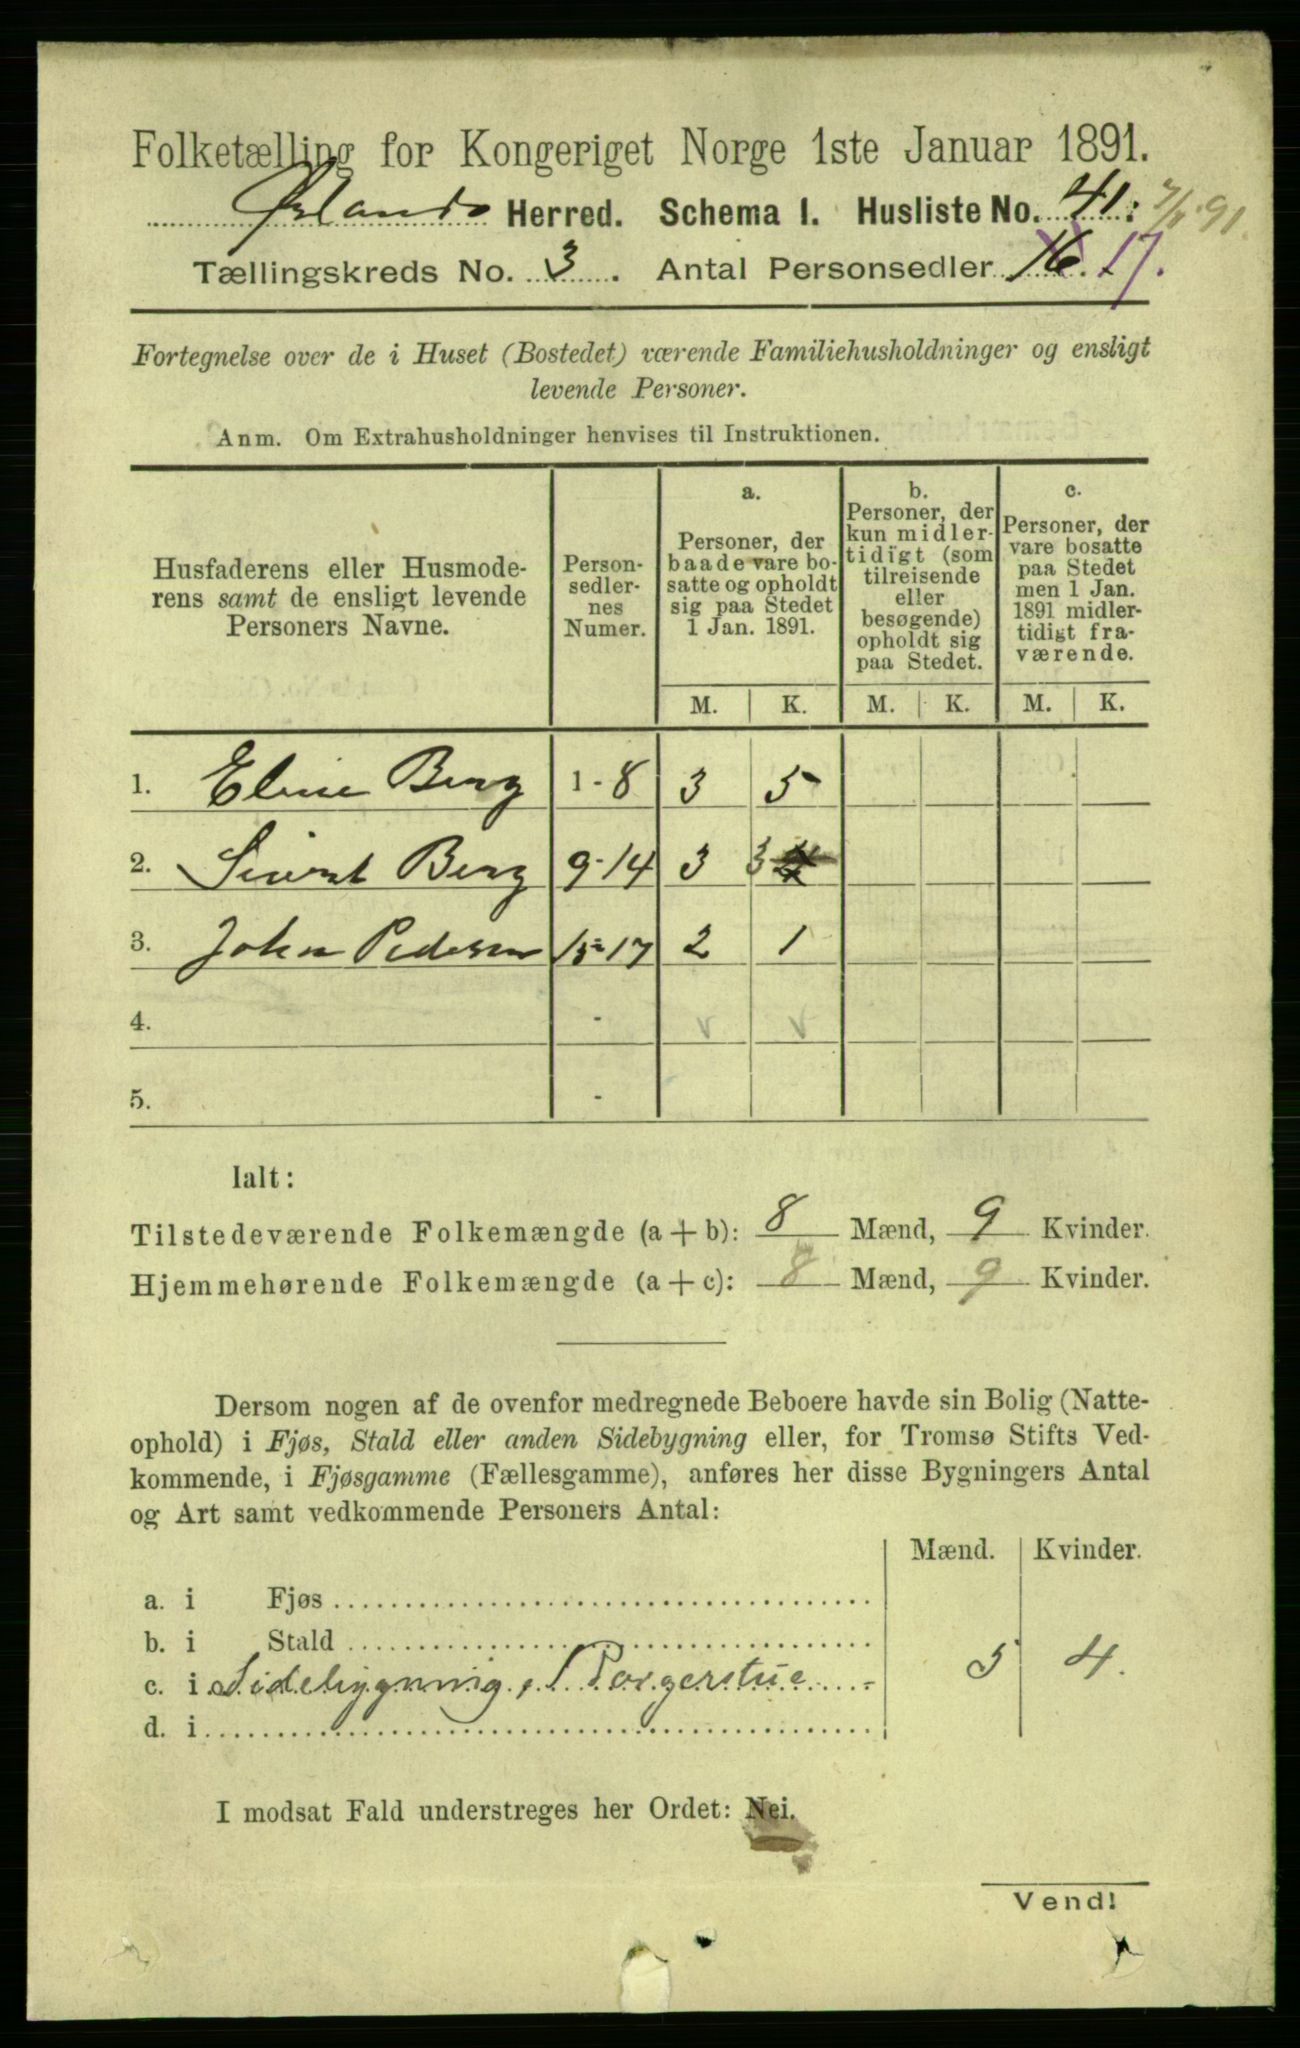 Folketælling for Kongeriget Norge 1ste Januar 1891.
Ørlands Herred. Schema 1. Husliste No. 41.
Tællingskreds No. 3. Antal Personsedler 16. 17.
Fortegnelse over de i Huset (Bostedet) værende Familiehusholdninger og ensligt
levende Personer.
Anm. Om Extrahusholdninger henvises til Instruktionen.
Husfaderens eller Husmode-
rens samt de ensligt levende
Personers Navne.
Person-
sedler-
nes
Numer.
a.
Personer, der
baade vare bo-
satte og opholdt
sig paa Stedet
1 Jan. 1891.
b.
Personer, der
kun midler-
tidigt (som
tilreisende
eller
besøgende)
opholdt sig
paa Stedet.
c.
Personer, der
vare bosatte
paa Stedet
men 1 Jan.
1891 midler-
tidigt fra-
værende.
M. K. M. K. M. K.
1. Eline Berg 1 - 8 3 5
2. Sivert Berg 9 - 14 3 3
3. John Pedersen 15 - 17 2 1
4. -
5. -
Ialt:
Tilstedeværende Folkemængde (a + b): 8 Mænd, 9 Kvinder.
Hjemmehørende Folkemængde (a + c): 8 Mænd, 9 Kvinder.
Dersom nogen af de ovenfor medregnede Beboere havde sin Bolig (Natte-
ophold) i Fjøs, Stald eller anden Sidebygning eller, for Tromsø Stifts Ved-
kommende, i Fjøsgamme (Fællesgamme), anføres her disse Bygningers Antal
og Art samt vedkommende Personers Antal:
Mænd. Kvinder.
a. i Fjøs
b. i Stald
c. i Sidebygning, Borgerstue 5 4.
d. i
I modsat Fald understreges her Ordet: Nei.
Vend!